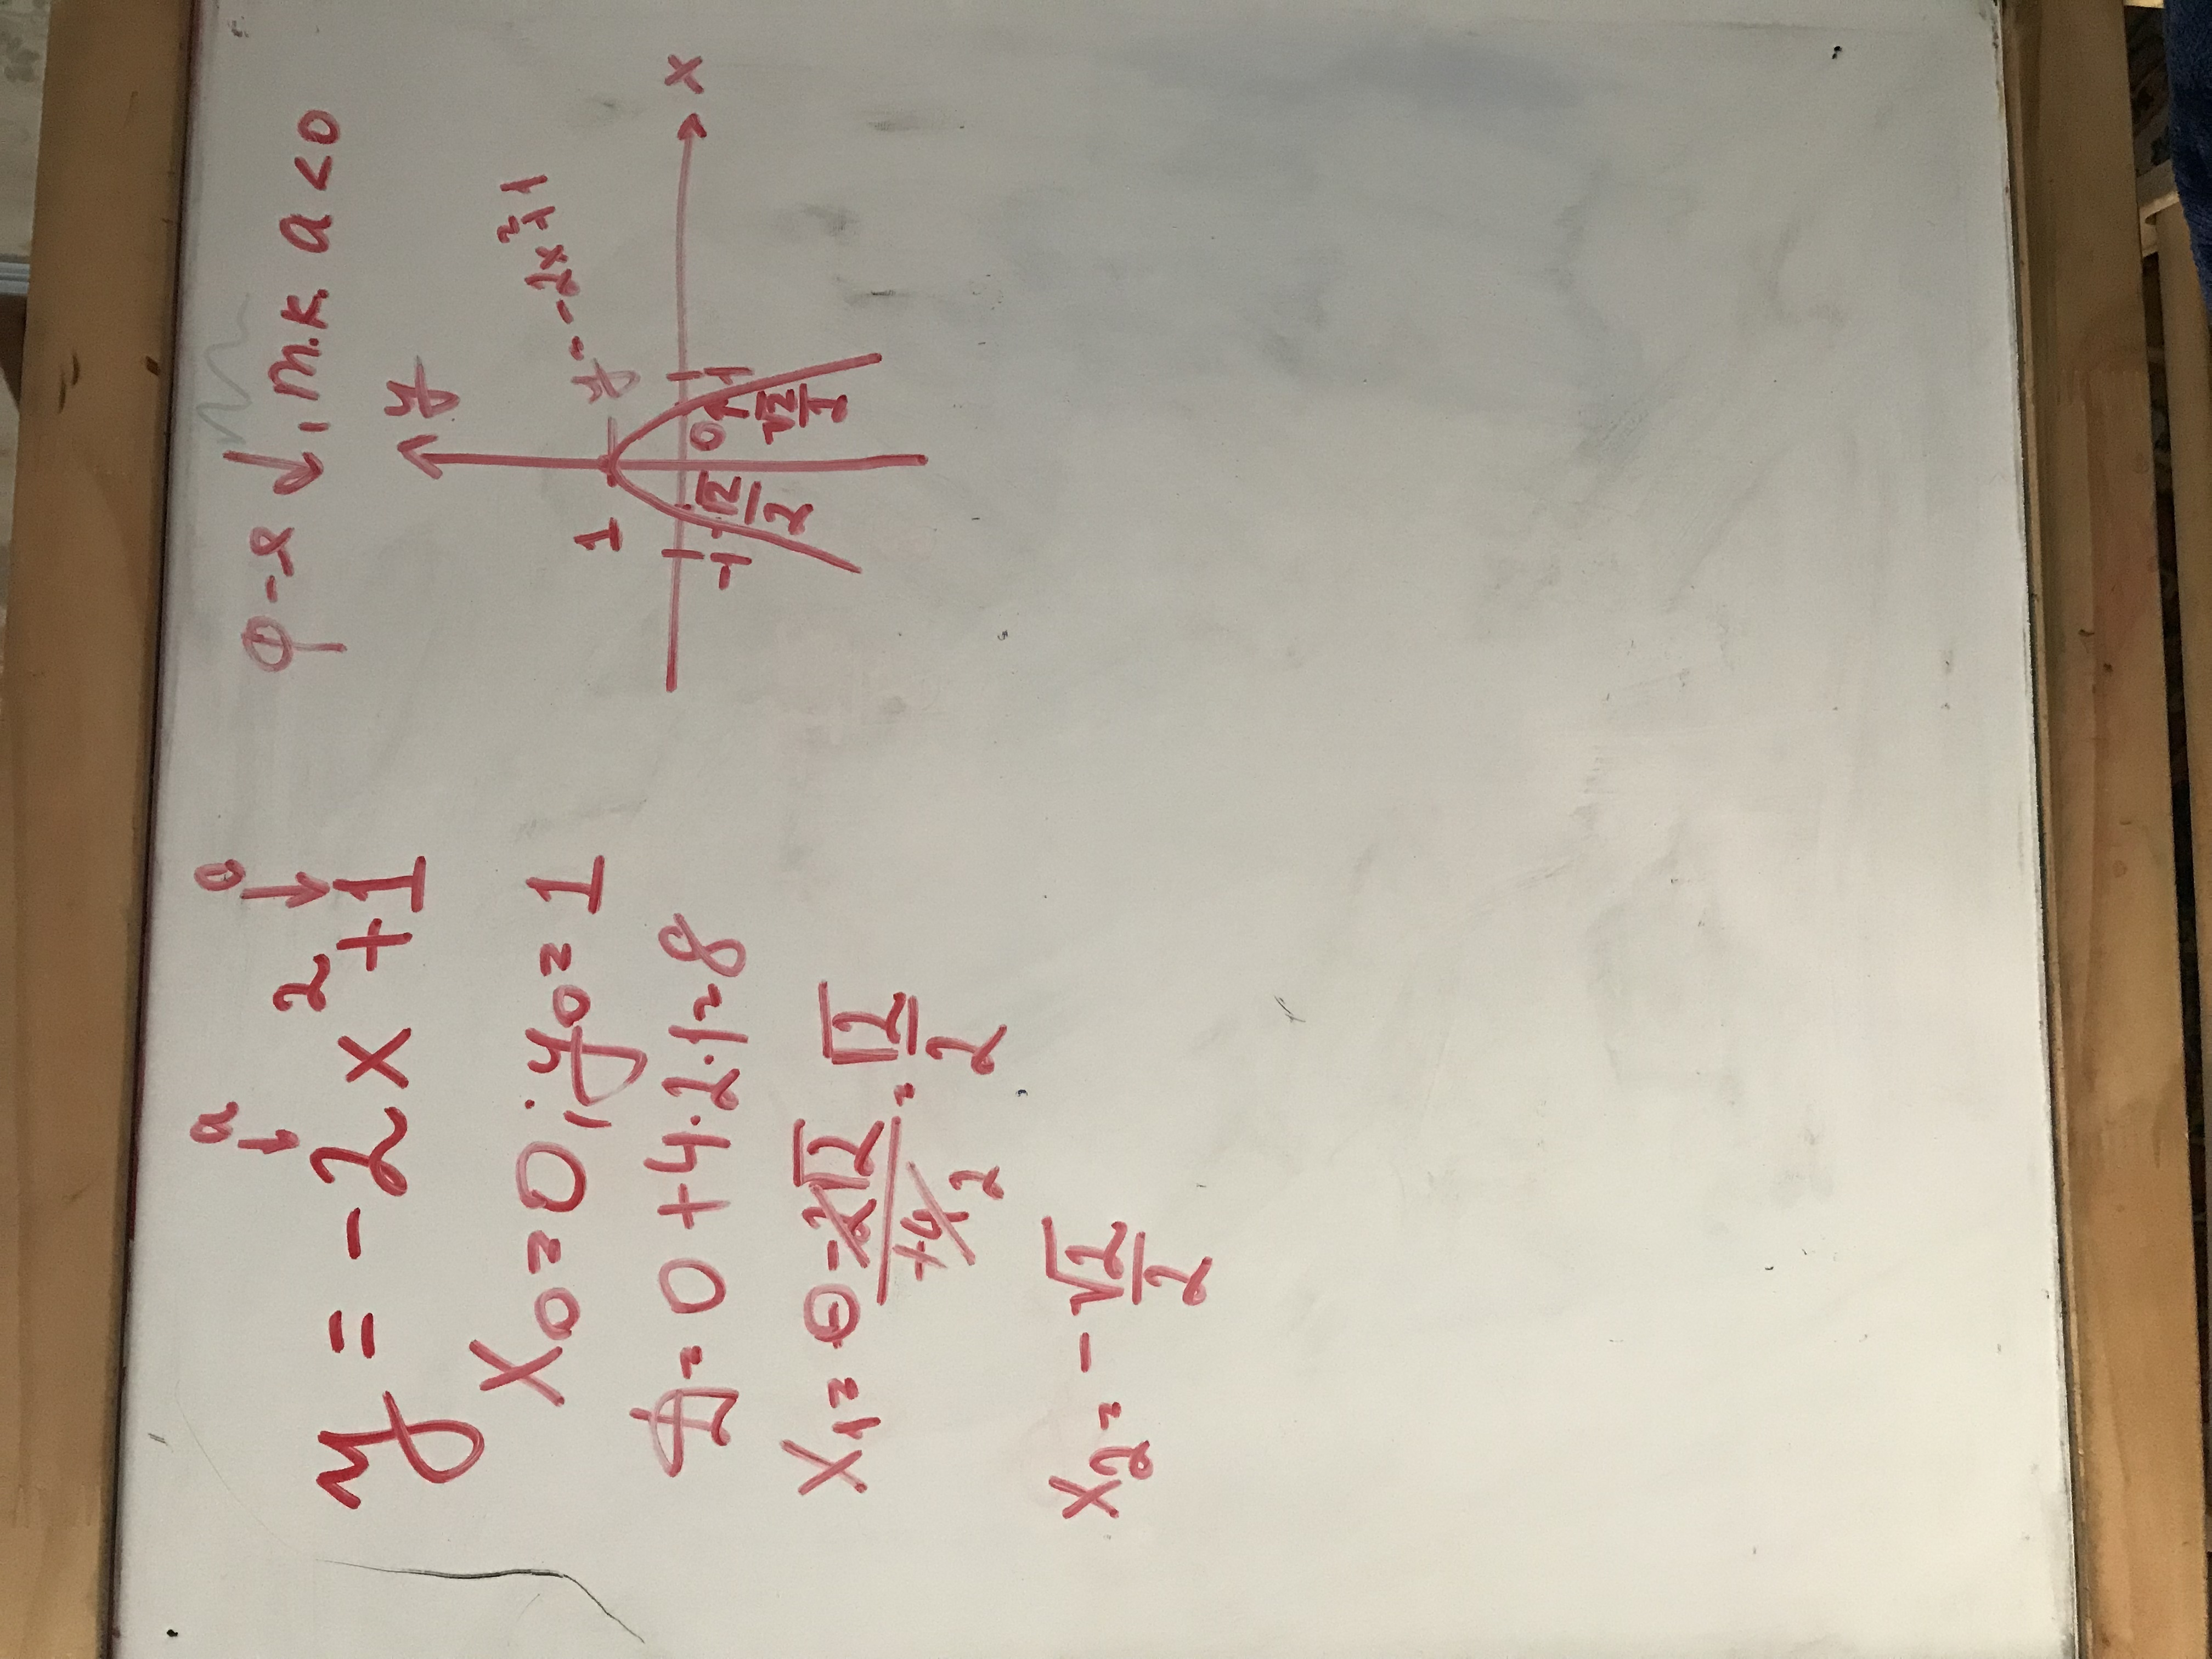 a c
y = -2x²+1
x₀=0; y₀=1
D=0+4·2·1=8
x₁=0-2√2/-4 2=√2/2
x₂=-√2/2
ф-я ↓, т.к. a<0
y
y=-2x²+1
1
x
-1 -√2/2 0 √2/2 1